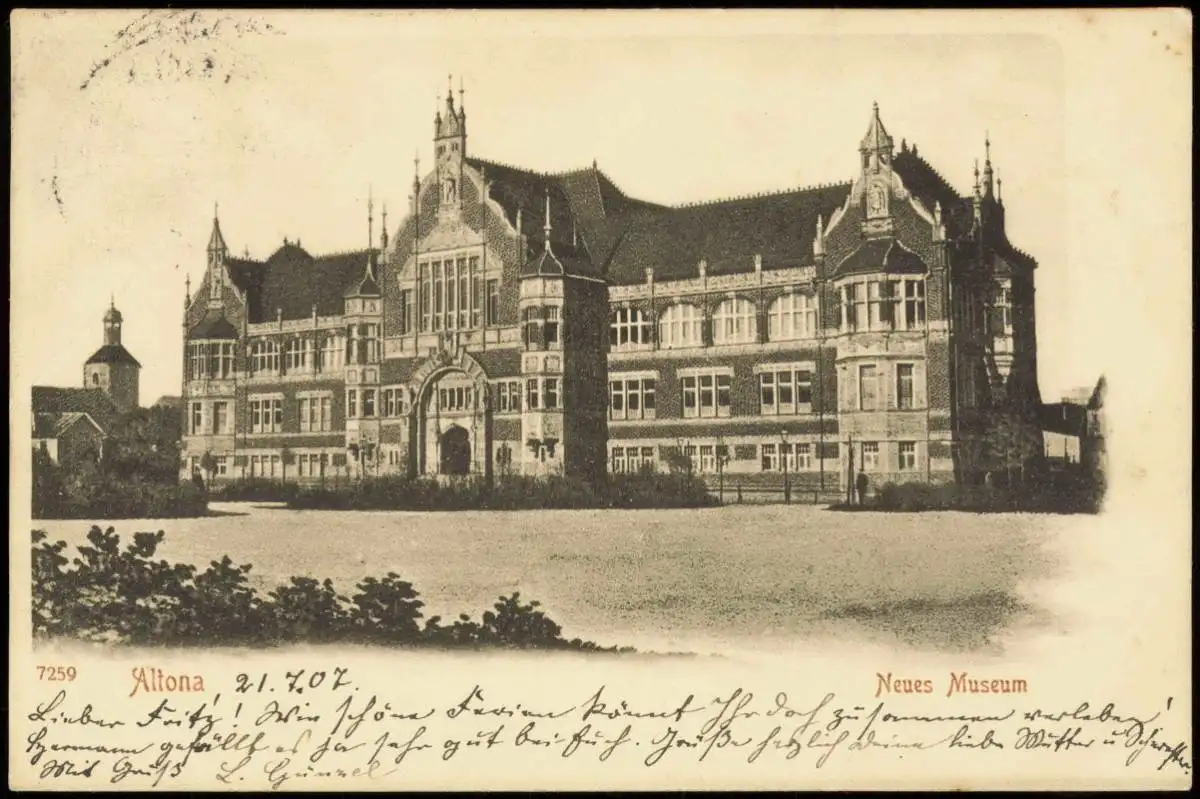 7259 Altona, 21.7.07. Neues Museum
Lieber Fritz! Wie schöne Ferien könnt Ihr doch zusammen verleben!
Hermann gefällt es ja sehr gut bei Euch. Grüße herzlich Deine liebe Mutter u Schwester.
Mit Gruß L.